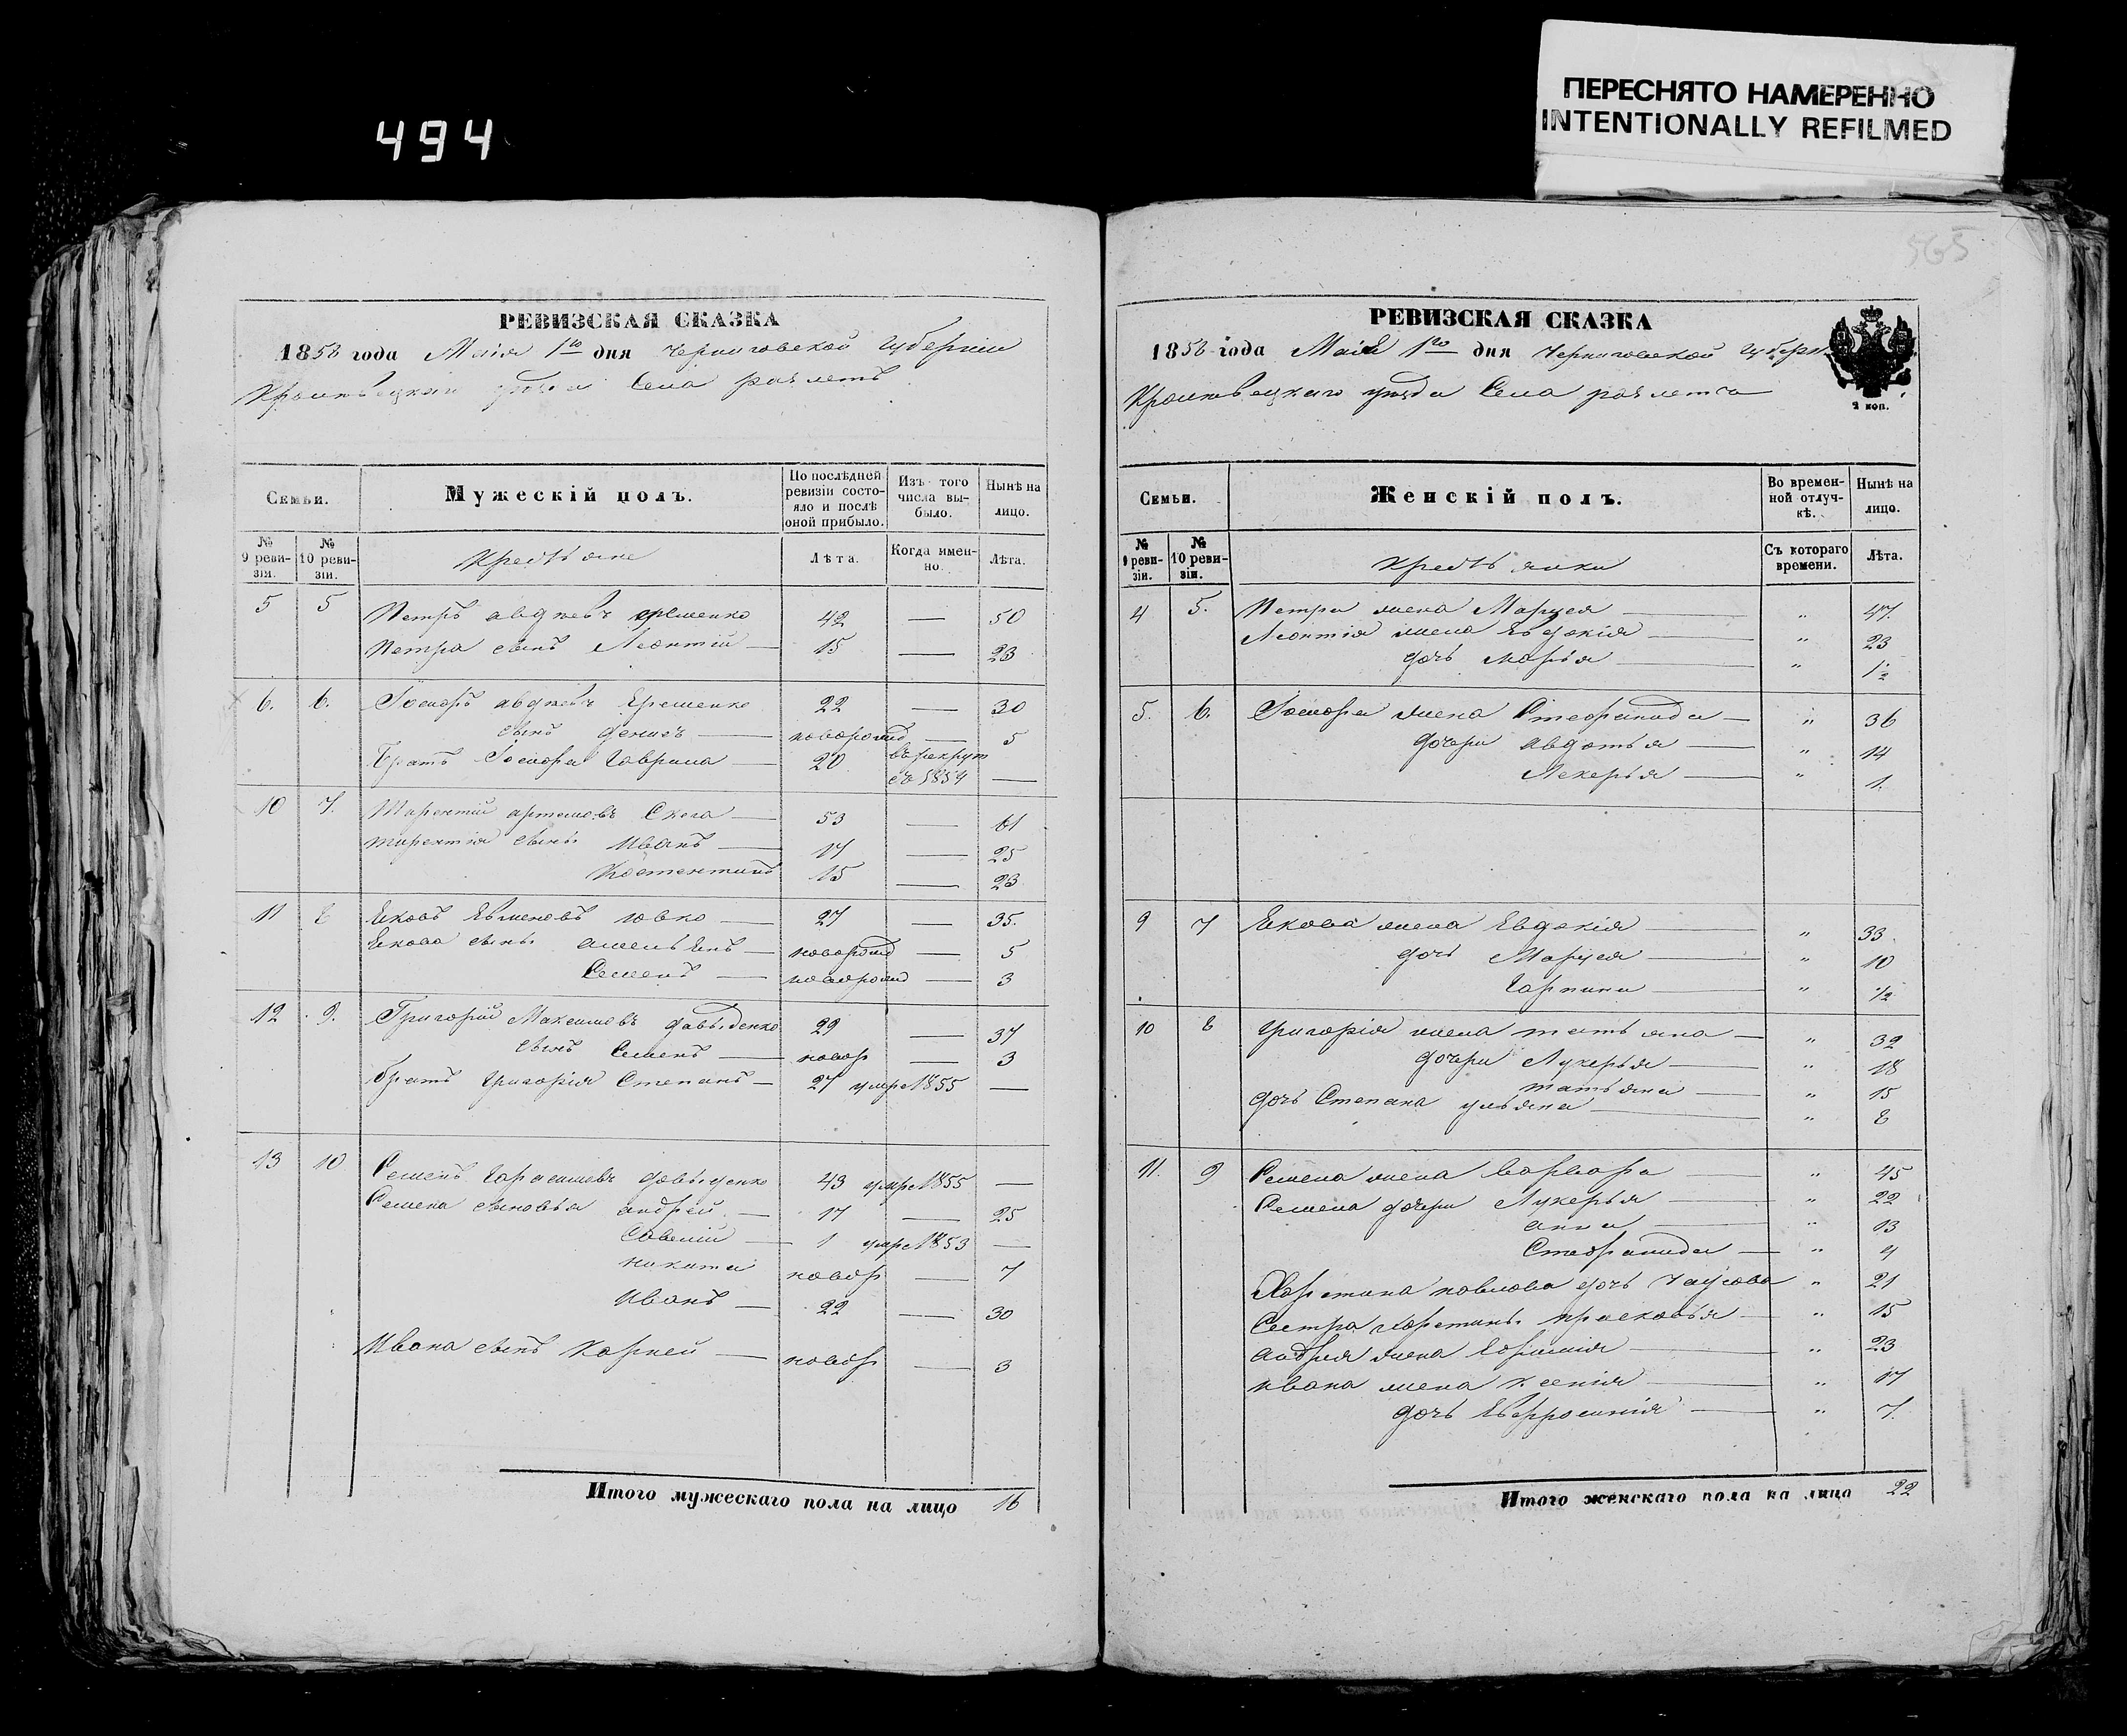 ПЕРЕСНЯТО НАМЕРЕННО
INTENTIONALLY REFILMED
494
565
РЕВИЗСКАЯ СКАЗКА
1858 года Маія 1го дня Черниговской Губерніи
Кролѣвецкаго уѣзда Села
Семьи.
Мужескій полъ.
По послѣдней ревизіи состояло и послѣ оной прибыло.
Изъ того числа выбыло.
Нынѣ на лицо.
№ 9 ревизіи.
№ 10 ревизіи.
Крестьяне
Лѣта.
Когда именно.
Лѣта.
5 5 Петръ авдѣевъ 42 — 50
Петра сынъ Леонтій — 15 — 23
6. 6. авдѣевъ Ерешенко 22 — 30
сынъ денисъ — новорожд — 5
братъ Гаврила — 20 въ рекрут съ 1854 —
10 7. артемовъ — 53 — 61
сынъ Иванъ — 17 — 25
Костентинъ 15 — 23
11 8 Яковъ Ювко — 27 — 35.
Якова сынъ — новорожд — 5
Семенъ — новорожд — 3
12 9. Григорій Максимовъ давыденко 29 — 37
сынъ Семенъ — новор — 3
братъ григорія Степанъ — 27 умре 1855 —
13 10 Семенъ Гарасимовъ давыденко 43 умре 1855 —
Семена сыновья андрей — 17 — 25
Савелій — 1 умре 1853 —
никита новор — 7
Иванъ — 22 — 30
Ивана сынъ Корней — новор — 3
Итого мужескаго пола на лицо 16
РЕВИЗСКАЯ СКАЗКА
1858 года Маія 1го дня Черниговской Губерн
Кролѣвецкаго уѣзда Села
2 коп.
Семьи.
Женскій полъ.
Во временной отлучкѣ.
Нынѣ на лицо.
№ 9 ревизіи.
№ 10 ревизіи.
Крестьянки
Съ котораго времени.
Лѣта.
4 5. Петра жена Маруся — " 47.
Леонтія жена Евдокія — " 23
дочь марья — " 1/2
5. 6. жена Стефанида — " 36
дочери авдотья — " 14
— " 1.
9 7 Якова жена Евдокія — " 33.
дочь Маруся — " 10
Гарпина — " 1/2
10 8 григорія жена татьяна — " 32
дочери Лукерья — " 18
татьяна — " 15
дочь Степана ульяна — " 8
11. 9 Семена жена Варвара — " 45
Семена дочери Лукерья — " 22
анна — " 13
Стефанида — " 4
павлова дочь " 21
Сестра прасковья — " 15
андрея жена — " 23
ивана жена ксенія — " 17
дочь Евфросинія — " 7.
Итого женскаго пола на лицо 22